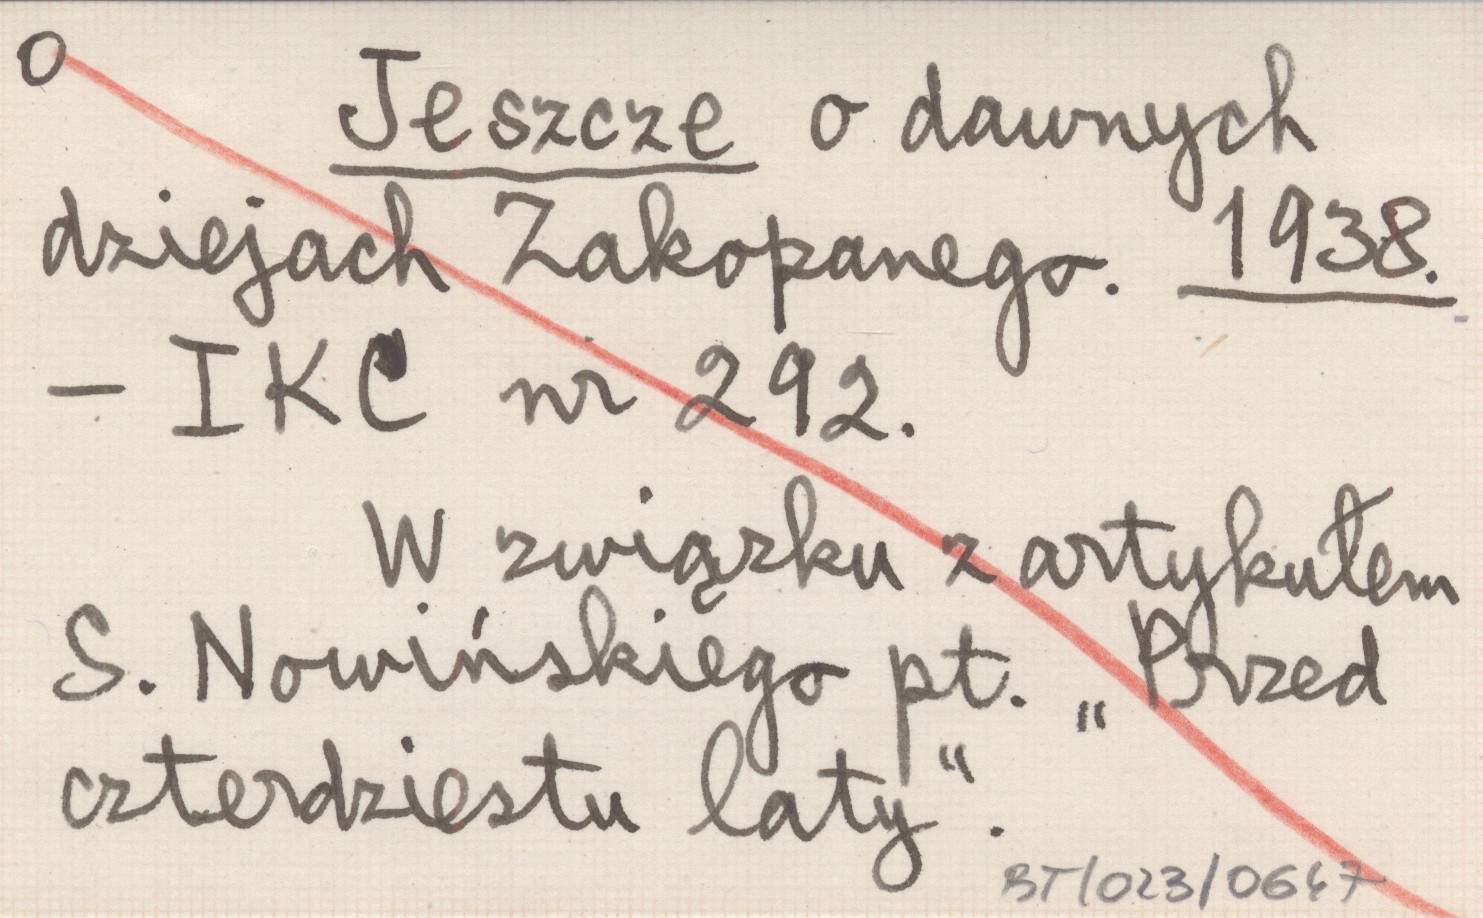 o
Jeszcze o dawnych
dziejach Zakopanego. 1938.
— IKC nr 292.
W związku z artykułem
S. Nowińskiego pt. „Przed
czterdziestu laty".
BT/023/0647